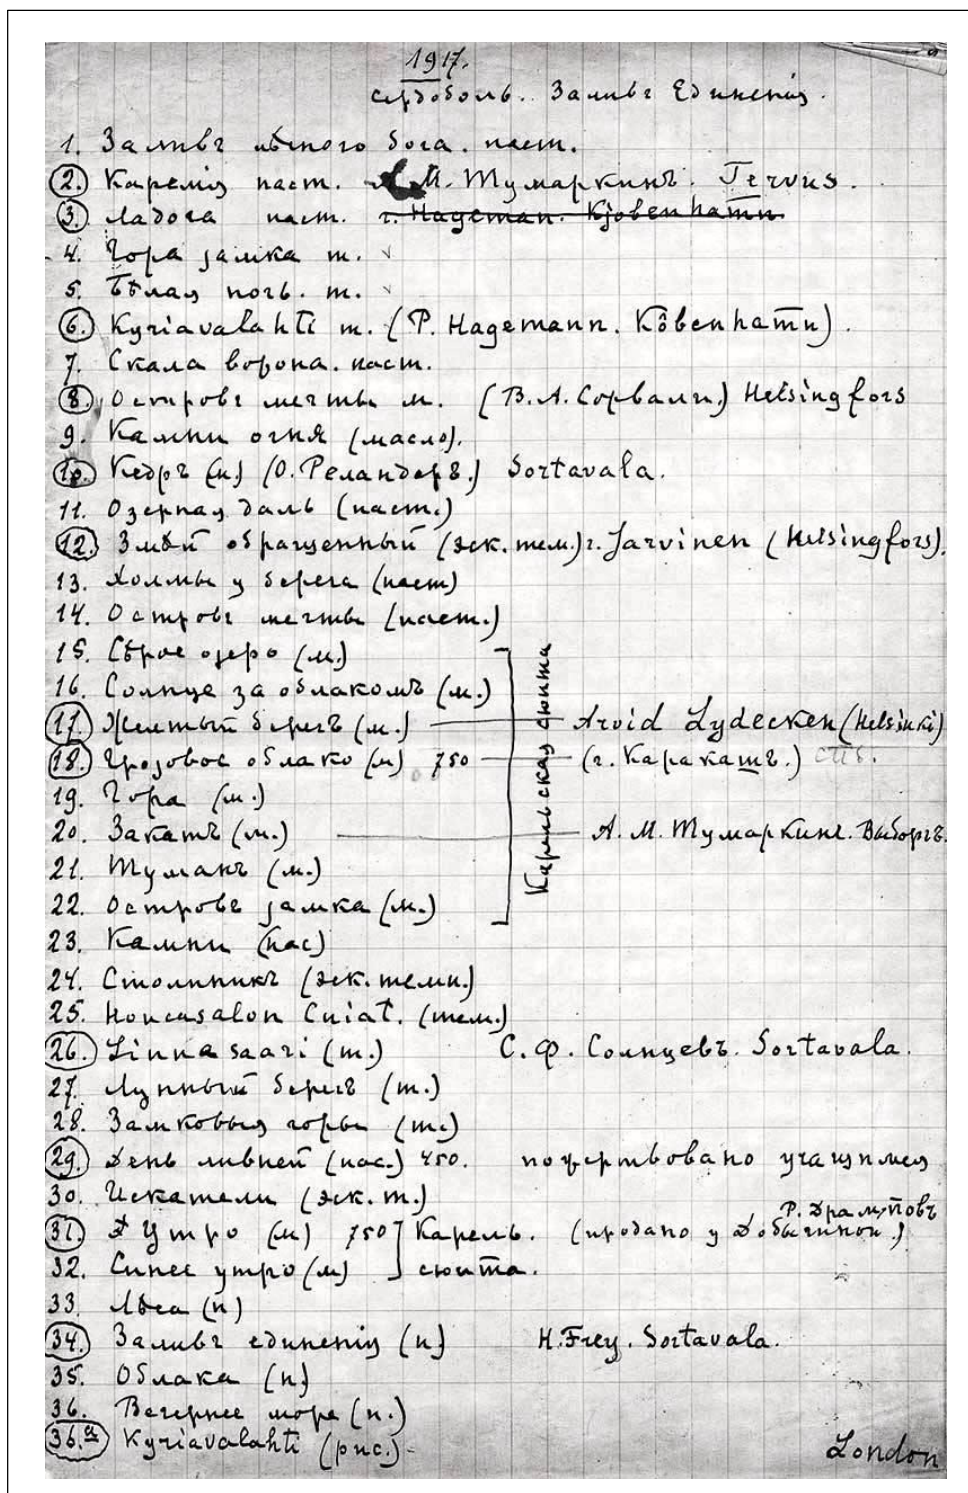 1917.
Сердоболь. Заливъ Единенія.
1. Заливъ лѣсного бога. паст.
2. Карелія паст. М. Тумаркинъ. Tervus.
3. Ладога паст. г. Hageman. Kjobenhamn
4. Гора замка т.
5. Бѣлая ночь. т.
6. Kyriavalahti т. (Р. Hagemann. Kôbenhamn).
7. Скала ворона. паст.
8. Островъ мечты м. (В. А. Сорвали.) Helsingfors
9. Камни огня (масло).
10. Кедръ (п.) (О. Реландеръ.) Sortavala.
11. Озерная даль (паст.)
12. Змѣй обращенный (эск. тем.) г. Jarvinen (Helsingfors).
13. Холмы у берега (паст)
14. Островъ мечты (паст.)
15. Сѣрое озеро (м.)
16. Солнце за облакомъ (м.)
17. Желтый берегъ (м.) Arvid Lydecken (Helsinki)
18. Грозовое облако (м) 750 (г. Каракашъ.) СПб.
19. Гора (м.)
20. Закатъ (м.) А. М. Тумаркинъ. Выборгъ.
21. Туманъ (м.)
22. Островъ замка (м.)
Карельская сюита
23. Камни (пас)
24. Столпникъ (эск. темп.)
25. (тем.)
26. Linnasaari (т.) С. Ф. Солнцевъ. Sortavala.
27. Лунный берегъ (т.)
28. Замковыя горы (т.)
29. День ливней (пас.) 450. пожертвовано учащимся
30. Искатели (эск. т.)
31. Утро (м) 750 Карель. (продано у Добычиной.)
32. Синее утро (м) сюита.
33. Лѣса (п)
34. Заливъ единенія (п) H. Frey. Sortavala.
35. Облака (п)
36. Вечернее море (п.)
36.а Kyriavalahti (рис.)
London